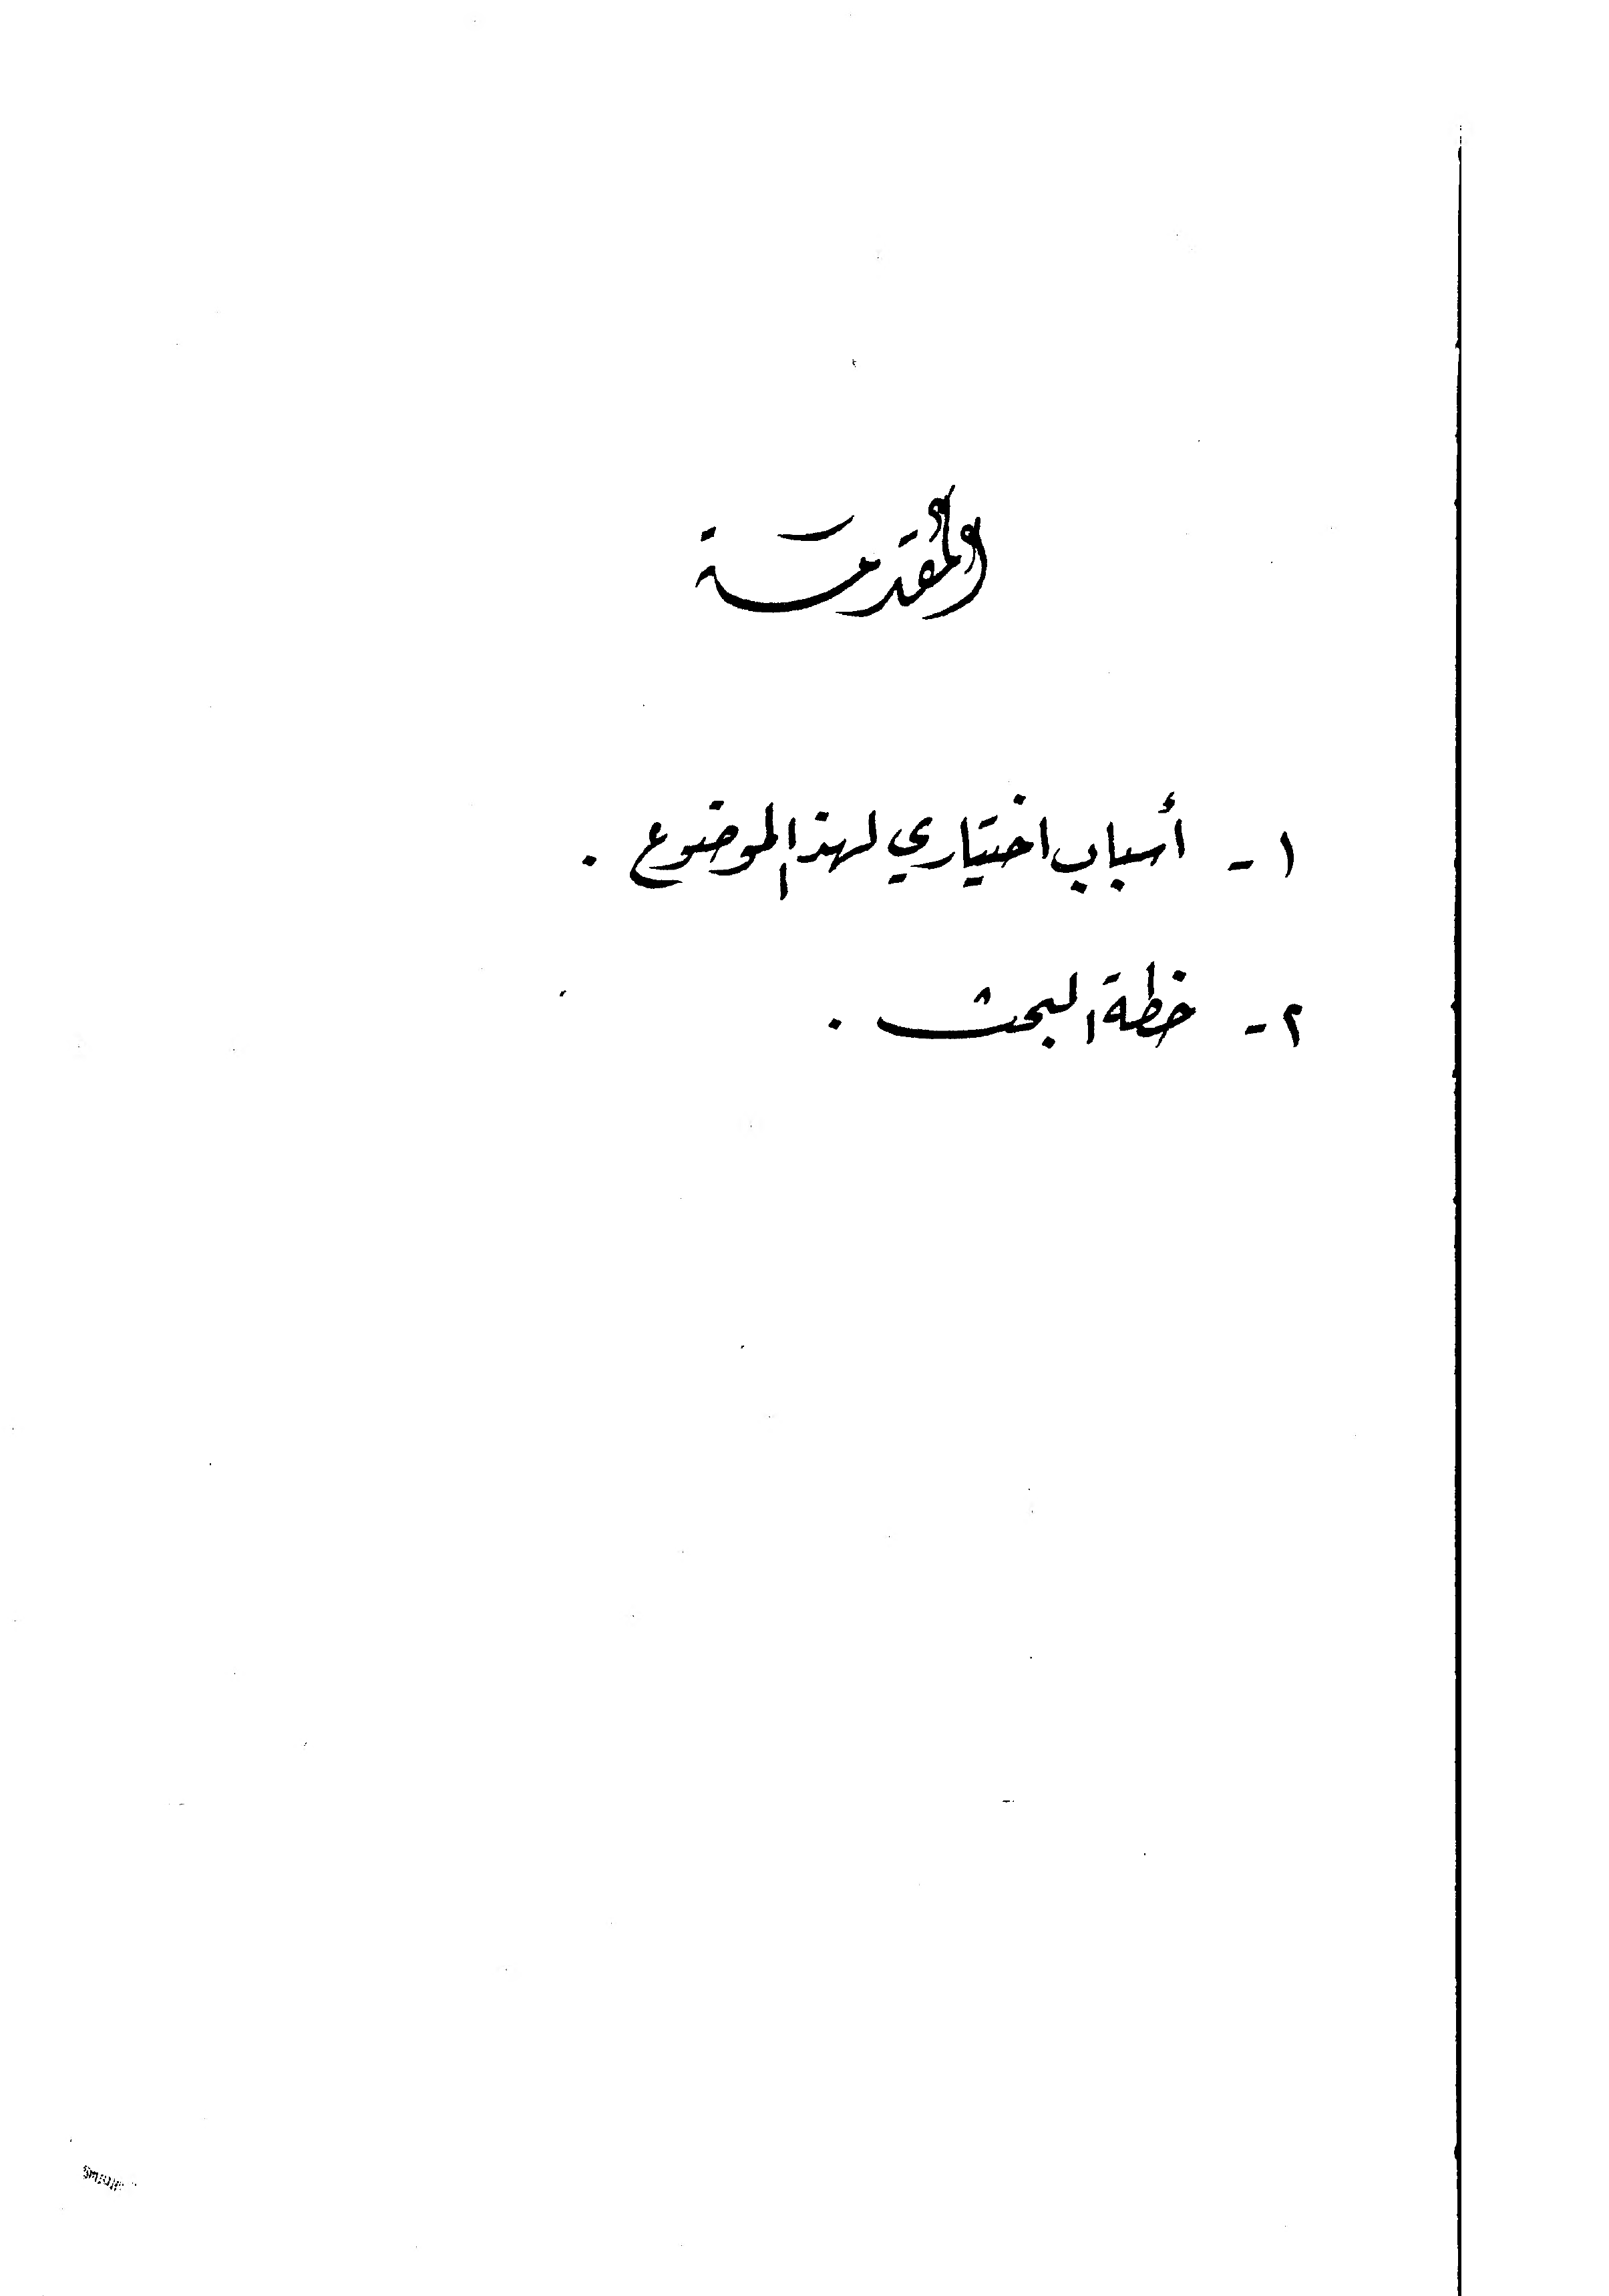 المقدمة
١- أسباب اختياري لهذا الموضوع .
٢- خطة البحث .